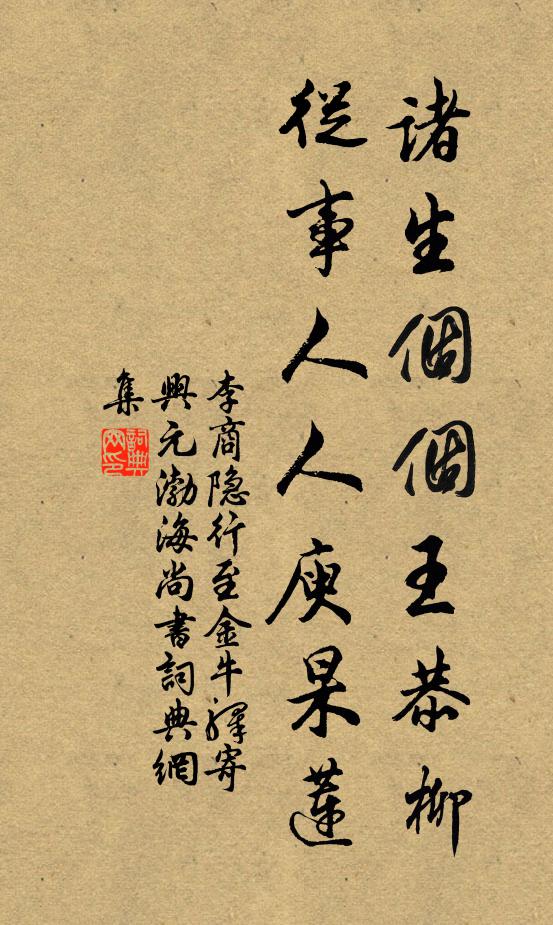 諸生個個王恭柳
從事人人庾杲蓮
李商隐行至金牛驛寄
興元渤海尚書詞典網
集
詞典網印